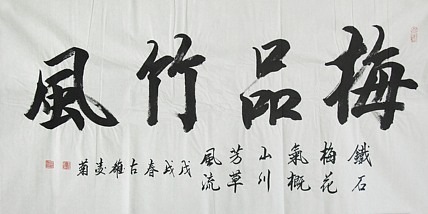 梅品竹風
鐵石
梅花
氣概
山川
芳草
風流
戊戌春古雄麦菊